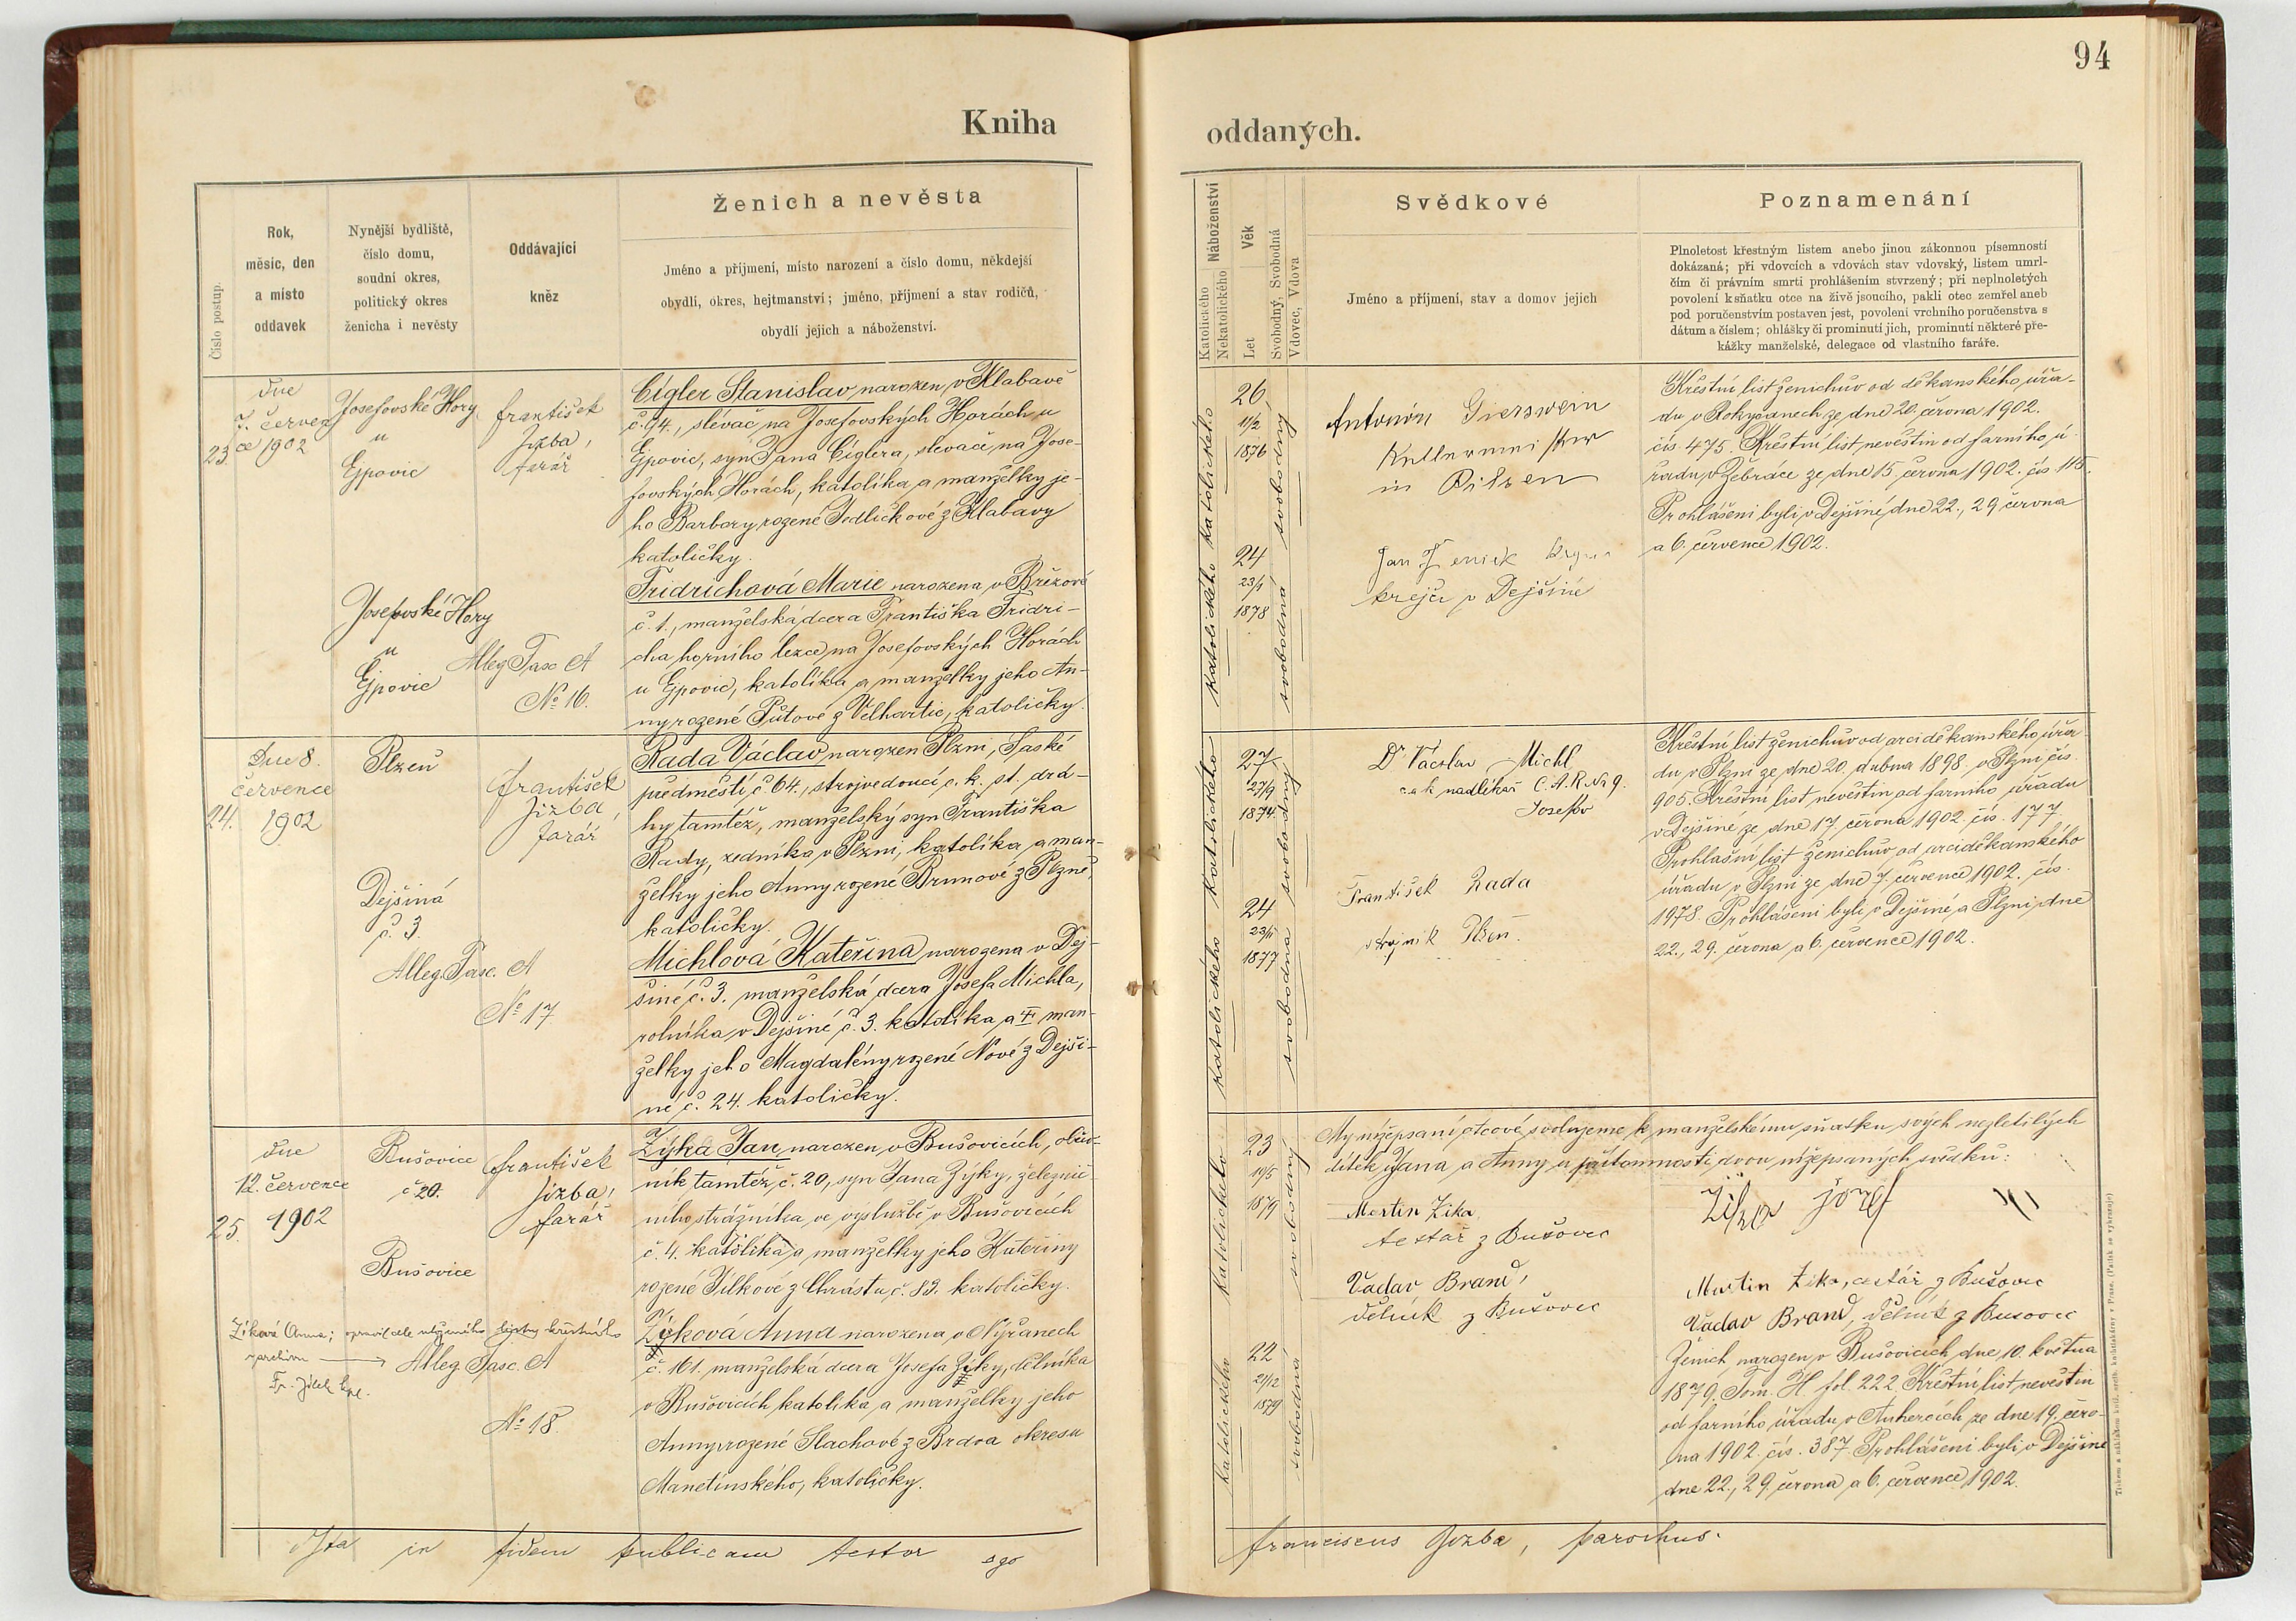 94
Kniha
oddaných.
Číslo postup.
Rok,
měsíc, den
a místo
oddavek
Nynější bydliště,
číslo domu,
soudní okres,
politický okres
ženicha i nevěsty
Oddávající
kněz
Ženich a nevěsta
Jméno a příjmení, místo narození a číslo domu, někdejší
obydlí, okres, hejtmanství; jméno, příjmení a stav rodičů,
obydlí jejich a náboženství.
23.
dne
7. červen
ce 1902
Josefovské Hory
u
Ejpovic
František
Jizba,
farář
Cígler Stanislav narozen v Klabavě
č. 94., slévač na Josefovských Horách u
Ejpovic, syn Jana Cíglera, slevače na Jose-
fovských Horách, katolíka a manželky je-
ho Barbory rozené Jedličkové z Klabavy
katoličky.
Josefovské Hory
u
Ejpovic
Alleg. Fasc A
No 16.
Fridrichová Marie narozena v Březové
č. 1., manželská dcera Františka Fridri-
cha, horního lezce na Josefovských Horách
u Ejpovic, katolíka a manželky jeho An-
ny rozené Půtové z Velhartic, katoličky.
24.
Dne 8.
července
1902
Plzeň
František
Jizba,
farář
Rada Václav narozen Plzni, Saské
předměstí, č 64., strojvedoucí c. k. st. drá-
hy tamtéž, manželský syn Františka
Rady, zedníka v Plzni, katolíka a man-
želky jeho Anny rozené Brunové z Plzně,
katoličky.
Dejšiná
č. 3.
Alleg. Fasc. A
No 17
Michlová Kateřina narozena v Dej-
šiné č. 3. manželská dcera Josefa Michla,
rolníka v Dejšiné č. 3. katolíka, a man-
želky jeho Magdalény rozené Nové z Dejši-
né č. 24. katoličky.
25.
dne
12. července
1902
Bušovice
č 20.
František
Jizba,
farář
Zýka Jan narozen v Bušovicích,
ník tamtéž č. 20, syn Jana Zýky, železnič-
ního strážníka ve výslužbě v Bušovicích
č. 4. katolíka a manželky jeho Kateřiny
rozené Jílkové z Chrástu č. 83. katoličky.
Bušovice
Žíková Anna; opravil dle listu křestního
Fr. Jílek kpl.
Alleg. Fasc. A
No 18.
Zýková Anna narozena v Nýřanech
č. 161. manželská dcera Josefa Zýky, dělníka
v Bušovicích katolíka a manželky jeho
Anny rozené Slachové z Brdoa okresu
Manetínského, katoličky.
Ita in fidem publicam testor ego
Náboženství
Katolického
Nekatolického
Věk
Let
Svobodný, Svobodná
Vdovec, Vdova
Svědkové
Jméno a příjmení, stav a domov jejich
Poznamenání
Plnoletost křestným listem anebo jinou zákonnou písemností
dokázaná; při vdovcích a vdovách stav vdovský, listem umrl-
čím či právním smrti prohlášením stvrzený; při neplnoletých
povolení k sňatku otce na živě jsoucího, pakli otec zemřel aneb
pod poručenstvím postaven jest, povolení vrchního poručenstva s
dátum a číslem; ohlášky či prominutí jich, prominutí některé pře-
kážky manželské, delegace od vlastního faráře.
katolického
26
11/2
1876
svobodný
Antonín Gierswein
in Pilsen
Křestní list ženichův od děkanského úřa-
du v Rokycanech ze dne 20. června 1902.
čís. 475. Křestní list nevěstin od farního ú-
řadu v Žebráce ze dne 15. června 1902. čís 115.
Prohlášeni byli v Dejšiné dne 22., 29 června
a 6. července 1902.
katolického
24
23/1
1878
svobodná
Jan
krejčí v Dejšiné
katolického
27
27/9
1874
svobodný
Dr Václav Michl
c. a k. nadlékař C. A. R. No 9.
Josefov
Křestní list ženichův od arciděkanského úřa-
du v Plzni ze dne 20. dubna 1898 v Plzni čís.
905. Křestní list nevěstin od farního úřadu
v Dejšiné ze dne 17. června 1902. čís. 177.
Prohlašní list ženichův od arciděkanského
úřadu v Plzni ze dne 7. července 1902. čís.
1978. Prohlášeni byli v Dejšiné a Plzni dne
22., 29. června a 6. července 1902.
katolického
24
23/11
1877
svobodna
František Rada
strojník Plzeň.
My nížepsaní otcové svolujeme k manželskému sňatku svých nezletilých
dítek Jana a Anny u přítomnosti dvou nížepsaných svědků:
katolického
23
10/5
1879
svobodný
Martin Zika
cestář z Bušovic
Václav Brand,
dělník z Bušovic
Žika Jozef
Martin Zika, cestář z Bušovic
Václav Brand, dělník z Bušovic
katolického
22
21/12
1879
svobodná
Ženich narozen v Bušovicích dne 10. května
1879, Tom. H fol. 222. Křestní list nevěstin
od farního úřadu v Auhercích ze dne 19. čer-
na 1902. čís. 387. Prohlášeni byli v Dejšiné
dne 22., 29. června a 6. července 1902.
Franciscus Jizba, parochus.